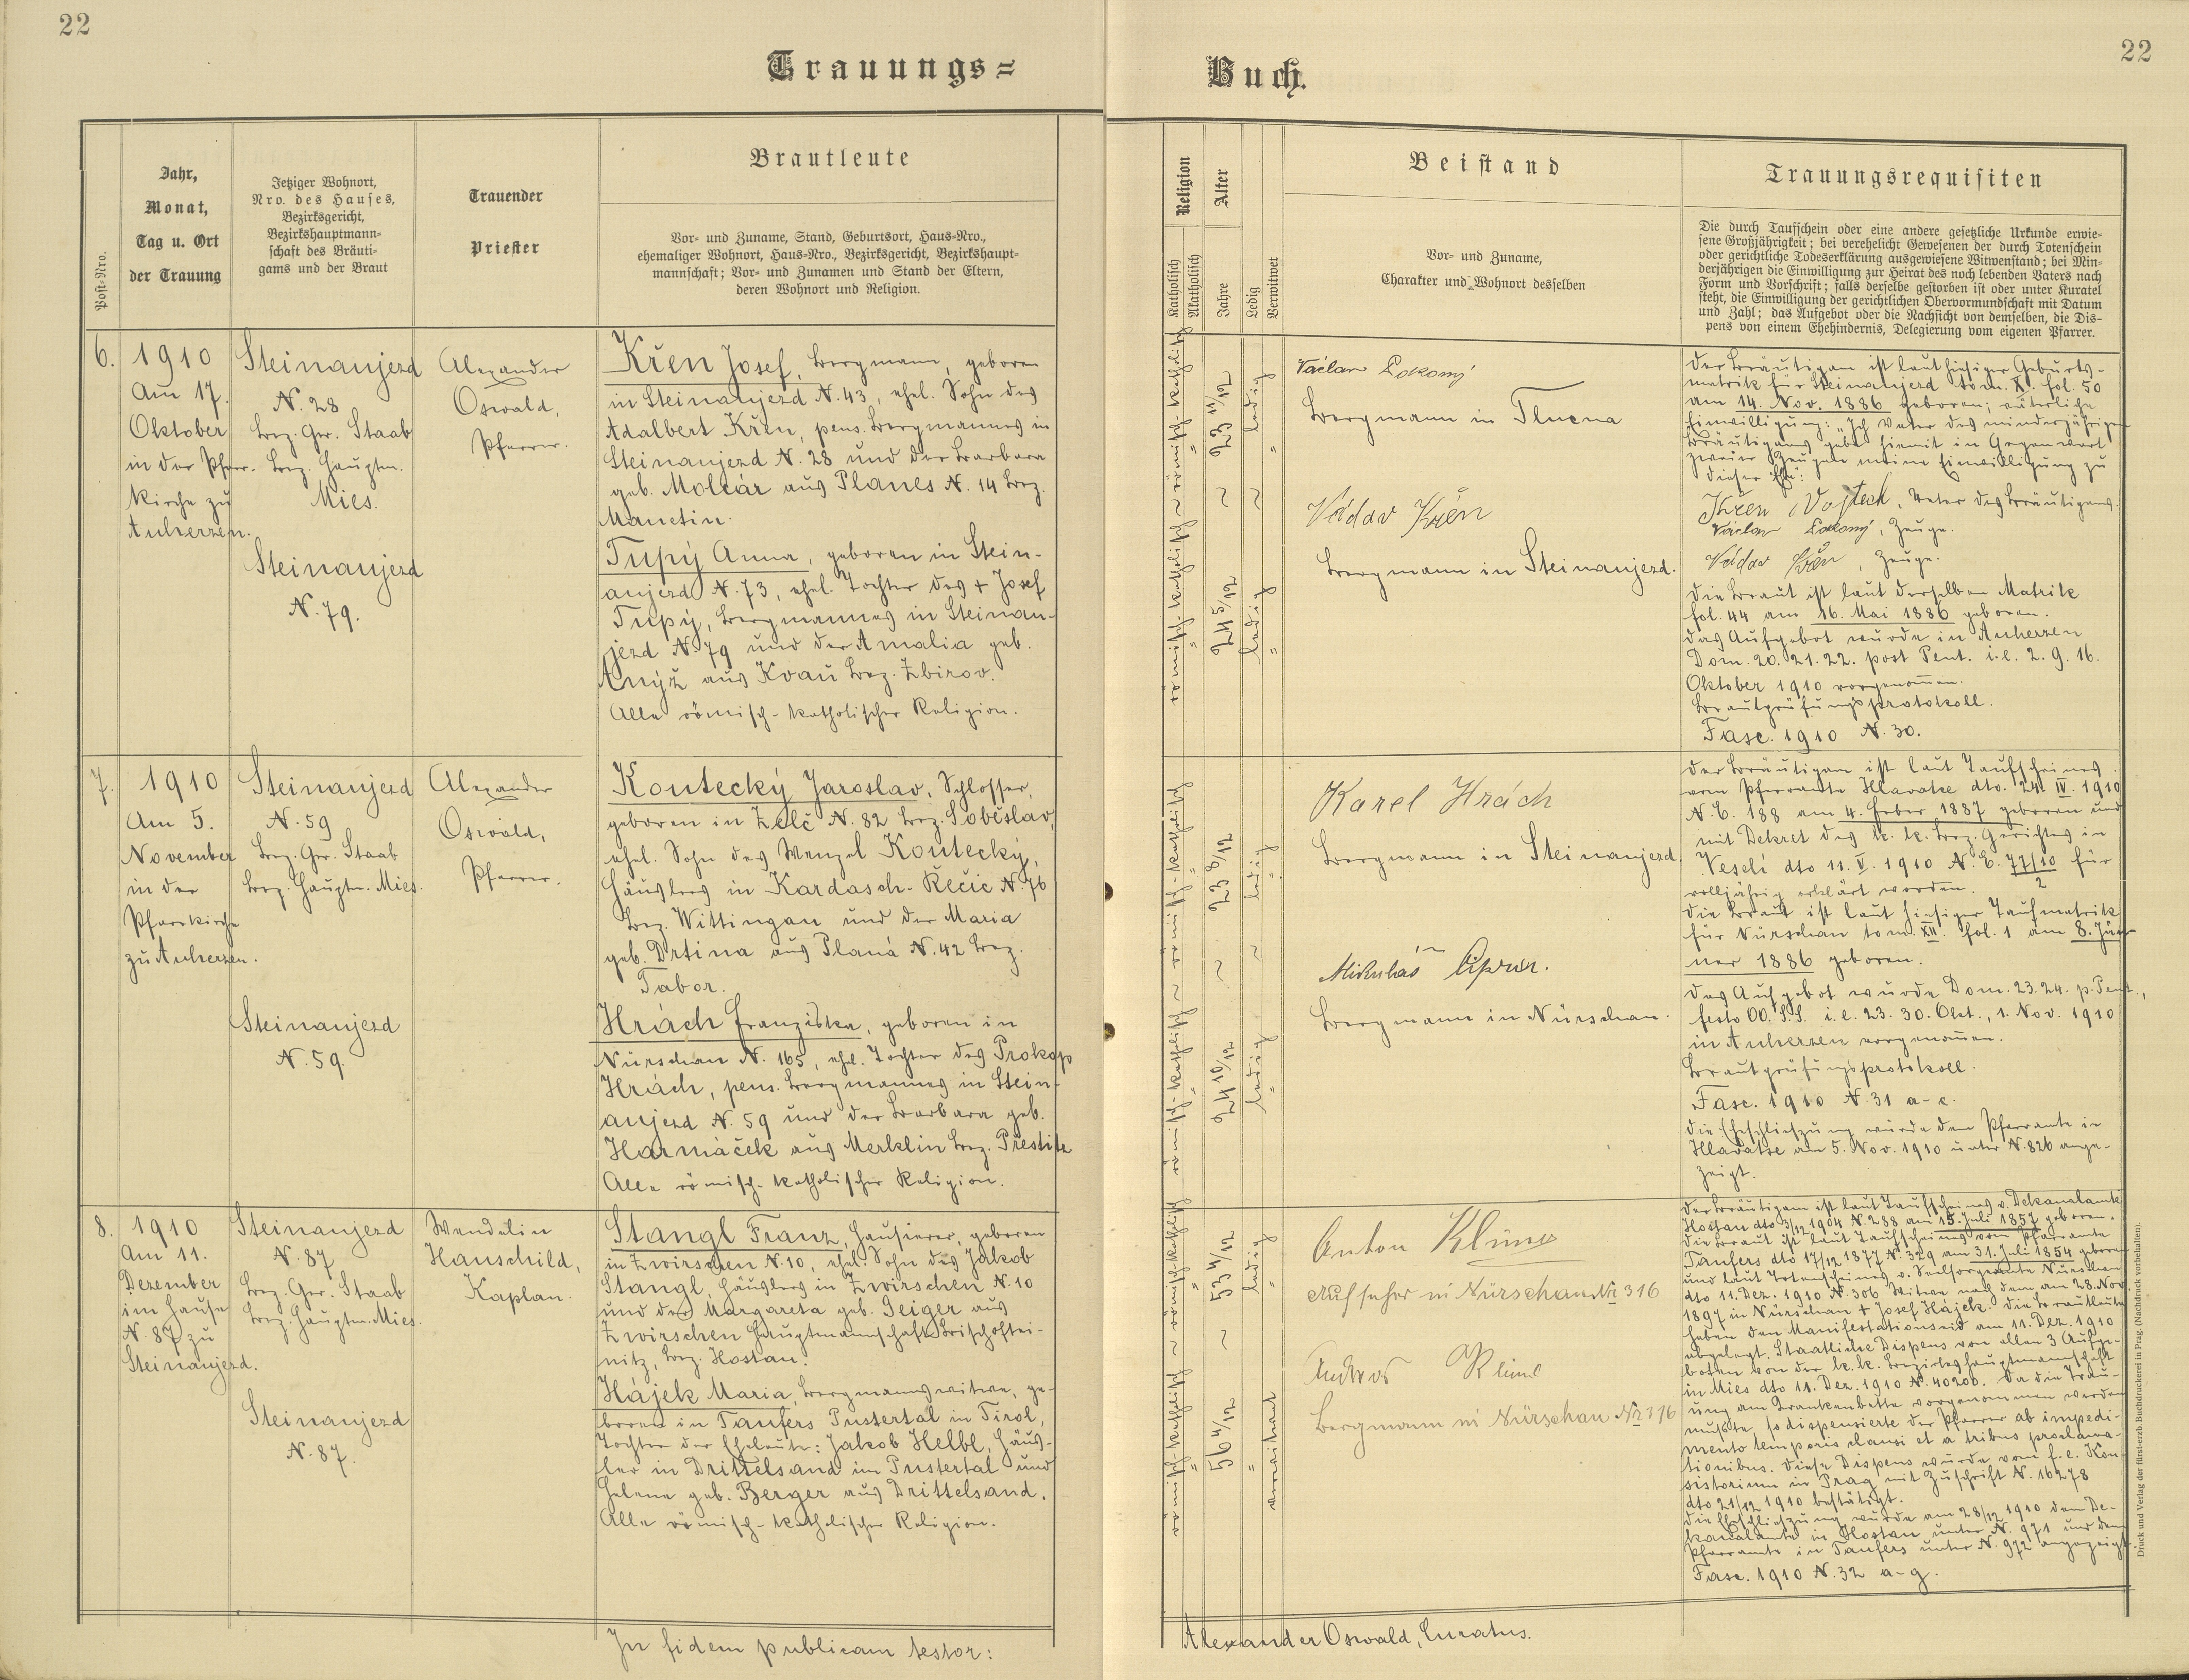 22
22
Trauungs=
Buch.
Post-Nro.
Jahr,
Monat,
Tag u. Ort
der Trauung
Jetziger Wohnort,
Nro. des Hauses,
Bezirksgericht,
Bezirkshauptmann-
schaft des Bräuti-
gams und der Braut
Trauender
Priester
Brautleute
Vor- und Zuname, Stand, Geburtsort, Haus-Nro.,
ehemaliger Wohnort, Haus-Nro., Bezirksgericht, Bezirkshaupt-
mannschaft; Vor- und Zunamen und Stand der Eltern,
deren Wohnort und Religion.
Religion
Katholisch
Akatholisch
Alter
Jahre
Ledig
Verwitwet
Beistand
Vor- und Zuname,
Charakter und Wohnort desselben
Trauungsrequisiten
Die durch Taufschein oder eine andere gesetzliche Urkunde erwie-
sene Großjährigkeit; bei verehelicht Gewesenen der durch Totenschein
oder gerichtliche Todeserklärung ausgewiesene Witwenstand; bei Min-
derjährigen die Einwilligung zur Heirat des noch lebenden Vaters nach
Form und Vorschrift; falls derselbe gestorben ist oder unter Kuratel
steht, die Einwilligung der gerichtlichen Obervormundschaft mit Datum
und Zahl; das Aufgebot oder die Nachsicht von demselben, die Dis-
pens von einem Ehehindernis, Delegierung vom eigenen Pfarrer.
6.
1910
Am 17.
Oktober
in der Pfarr-
kirche zu
Auherzen.
Steinaujezd
N. 28
Bez. Ger. Staab
Bez. Hauptm.
Mies.
Steinaujezd
N. 79.
Alexander
Oswald,
Pfarrer.
Křen Josef, Bergmann, geboren
in Steinaujezd N. 43, ehel. Sohn des
Adalbert Křen, pens. Bergmannes in
Steinaujezd N. 28 und der Barbara
geb. Molcár aus Planes N. 14 Bez.
Manetin.
Tupý Anna, geboren in Stein-
aujezd N. 73, ehel. Tochter des + Josef
Tupý, Bergmannes in Steinau-
jezd N. 79 und der Amalia geb.
Anýž aus Kvaň Bez. Zbirov.
Alle römisch-katholischer Religion.
römisch-katholisch ~ römisch-katholisch
23 11/12 ~ 24 5/12
ledig ~ ledig
Václav Pokorný
Bergmann in Tlucna
Václav Křen
Bergmann in Steinaujezd.
Der Bräutigam ist laut hiesiger Geburts-
matrik für Steinaujezd tom. X. fol. 50
am 14. Nov. 1886 geboren; väterliche
Einwilligung: "Ich Vater des minderjährigen
Bräutigams gebe hiemit in Gegenwart
zweier Zeugen meine Einwilligung zu
dieser Ehe":
Křen Vojtěch, Vater des Bräutigams.
Václav Pokorný, Zeuge.
Václav Křen, Zeuge.
Die Braut ist laut derselben Matrik
fol. 44 am 16. Mai 1886 geboren.
Das Aufgebot wurde in Auherzen
Dom. 20. 21. 22. post Pent. i. e. 2. 9. 16.
Oktober 1910 vorgenommen.
Brautprüfungsprotokoll.
Fasc. 1910 N. 30.
7.
1910
Am 5.
November
in der
Pfarrkirche
zu Auherzen.
Steinaujezd
N. 59
Bez. Ger. Staab
Bez. Hauptm. Mies.
Steinaujezd
N. 59.
Alexander
Oswald,
Pfarrer.
Koutecký Jaroslav, Schlosser,
geboren in Želč N. 82 Bez. Soběslav,
ehel. Sohn des Wenzel Koutecký,
Häuslers in Kardasch-Rečic N. 76
Bez. Wittingau und der Maria
geb. Drtina aus Planá N. 42 Bez.
Tabor.
Hrách Franziska, geboren in
Nürschan N. 165, ehel. Tochter des Prokop
Hrách, pens. Bergmannes in Stein-
aujezd N. 59 und der Barbara geb.
Harmáček aus Merklin Bez. Přestitz
Alle römisch-katholischer Religion.
römisch-katholisch ~ römisch-katholisch
23 8/12 ~ 24 10/12
ledig ~ ledig
Karel Hrách
Bergmann in Steinaujezd.
Mikuláš
Bergmann in Nürschan.
Der Bräutigam ist laut Taufscheines
vom Pfarramte Hlavatce dto. 24. IV. 1910
N. E. 188 am 4. Feber 1887 geboren und
mit Dekret des k. k. Bez. Gerichtes in
Veselí dto 11. V. 1910 N. E. 77/10 für
2
volljährig erklärt worden.
Die Braut ist laut hiesiger Taufmatrik
für Nürschan tom. XII. fol. 1 am 8. Jän-
ner 1886 geboren.
Das Aufgebot wurde Dom. 23. 24. p. Pent.,
festo OO. S.S. i. e. 23. 30. Okt., 1. Nov. 1910
in Auherzen vorgenommen.
Brautprüfungsprotokoll.
Fasc. 1910 N. 31 a-c.
Die Eheschließung wurde dem Pfarramte in
Hlavatce am 5. Nov. 1910 unter N. 826 ange-
zeigt.
8.
1910
Am 11.
Dezember
im Hause
N. 87 zu
Steinaujezd.
Steinaujezd
N. 87
Bez. Ger. Staab
Bez. Hauptm. Mies.
Steinaujezd
N. 87.
Wendelin
Hauschild,
Kaplan.
Stangl Franz, Hausierer, geboren
in Zwirschen N. 10, ehel. Sohn des Jakob
Stangl, Häuslers in Zwirschen N. 10
und der Margareta geb. Geiger aus
Zwirschen Hauptmannschaft Bischoftei-
nitz, Bez. Hostau.
Hájek Maria, Bergmannswitwe, ge-
boren in Taufers Pustertal in Tirol,
Tochter der Eheleute: Jakob Helbl, Häus-
ler in Drittelsand im Pustertal und
Helene geb. Berger aus Drittelsand.
Alle römisch-katholischer Religion.
römisch-katholisch ~ römisch-katholisch
53 4/12 ~ 56 4/12
ledig
verwitwet
Anton Klima
Aufseher in Nürschan Nr 316
Andreas Klima
Bergmann in Nürschan Nr 316
Der Bräutigam ist laut Taufscheines v. Dekanalamte
Hostau dto 3/12 1904 N. 288 am 15. Juli 1857 geboren.
Die Braut ist laut Taufscheines vom Pfarramte
Taufers dto 17/12 1877 N. 329 am 31. Juli 1854 geboren
und laut Totenscheines v. Seelsorgeamte Nürschan
dto 11. Dez. 1910 N. 306 Witwe nach dem am 28. Nov.
1897 in Nürschan + Josef Hájek. Die Brautleute
haben den Manifestationseid am 11. Dez. 1910
abgelegt. Staatliche Dispens von allen 3 Aufge-
boten von der k. k. Bezirkshauptmannschaft
in Mies dto 11. Dez. 1910 N. 40200. Da die Trau-
ung am Krankenbette vorgenommen werden
mußte, so dispensierte der Pfarrer ab impedi-
mento temporis clausi et a tribus proclama-
tionibus. Diese Dispens wurde vom f. e. Kon-
sistorium in Prag mit Zuschrift N. 16278
dto 21/12 1910 bestätigt.
Die Eheschließung wurde am 28/12 1910 dem De-
kanalamte in Hostau unter N. 971 und dem
Pfarramte in Taufers unter N. 972 angezeigt.
Fasc. 1910 N. 32 a-g.
In fidem publicam testor:
Alexander Oswald, Curatus.
Druck und Verlag der fürst-erzb. Buchdruckerei in Prag. (Nachdruck vorbehalten).